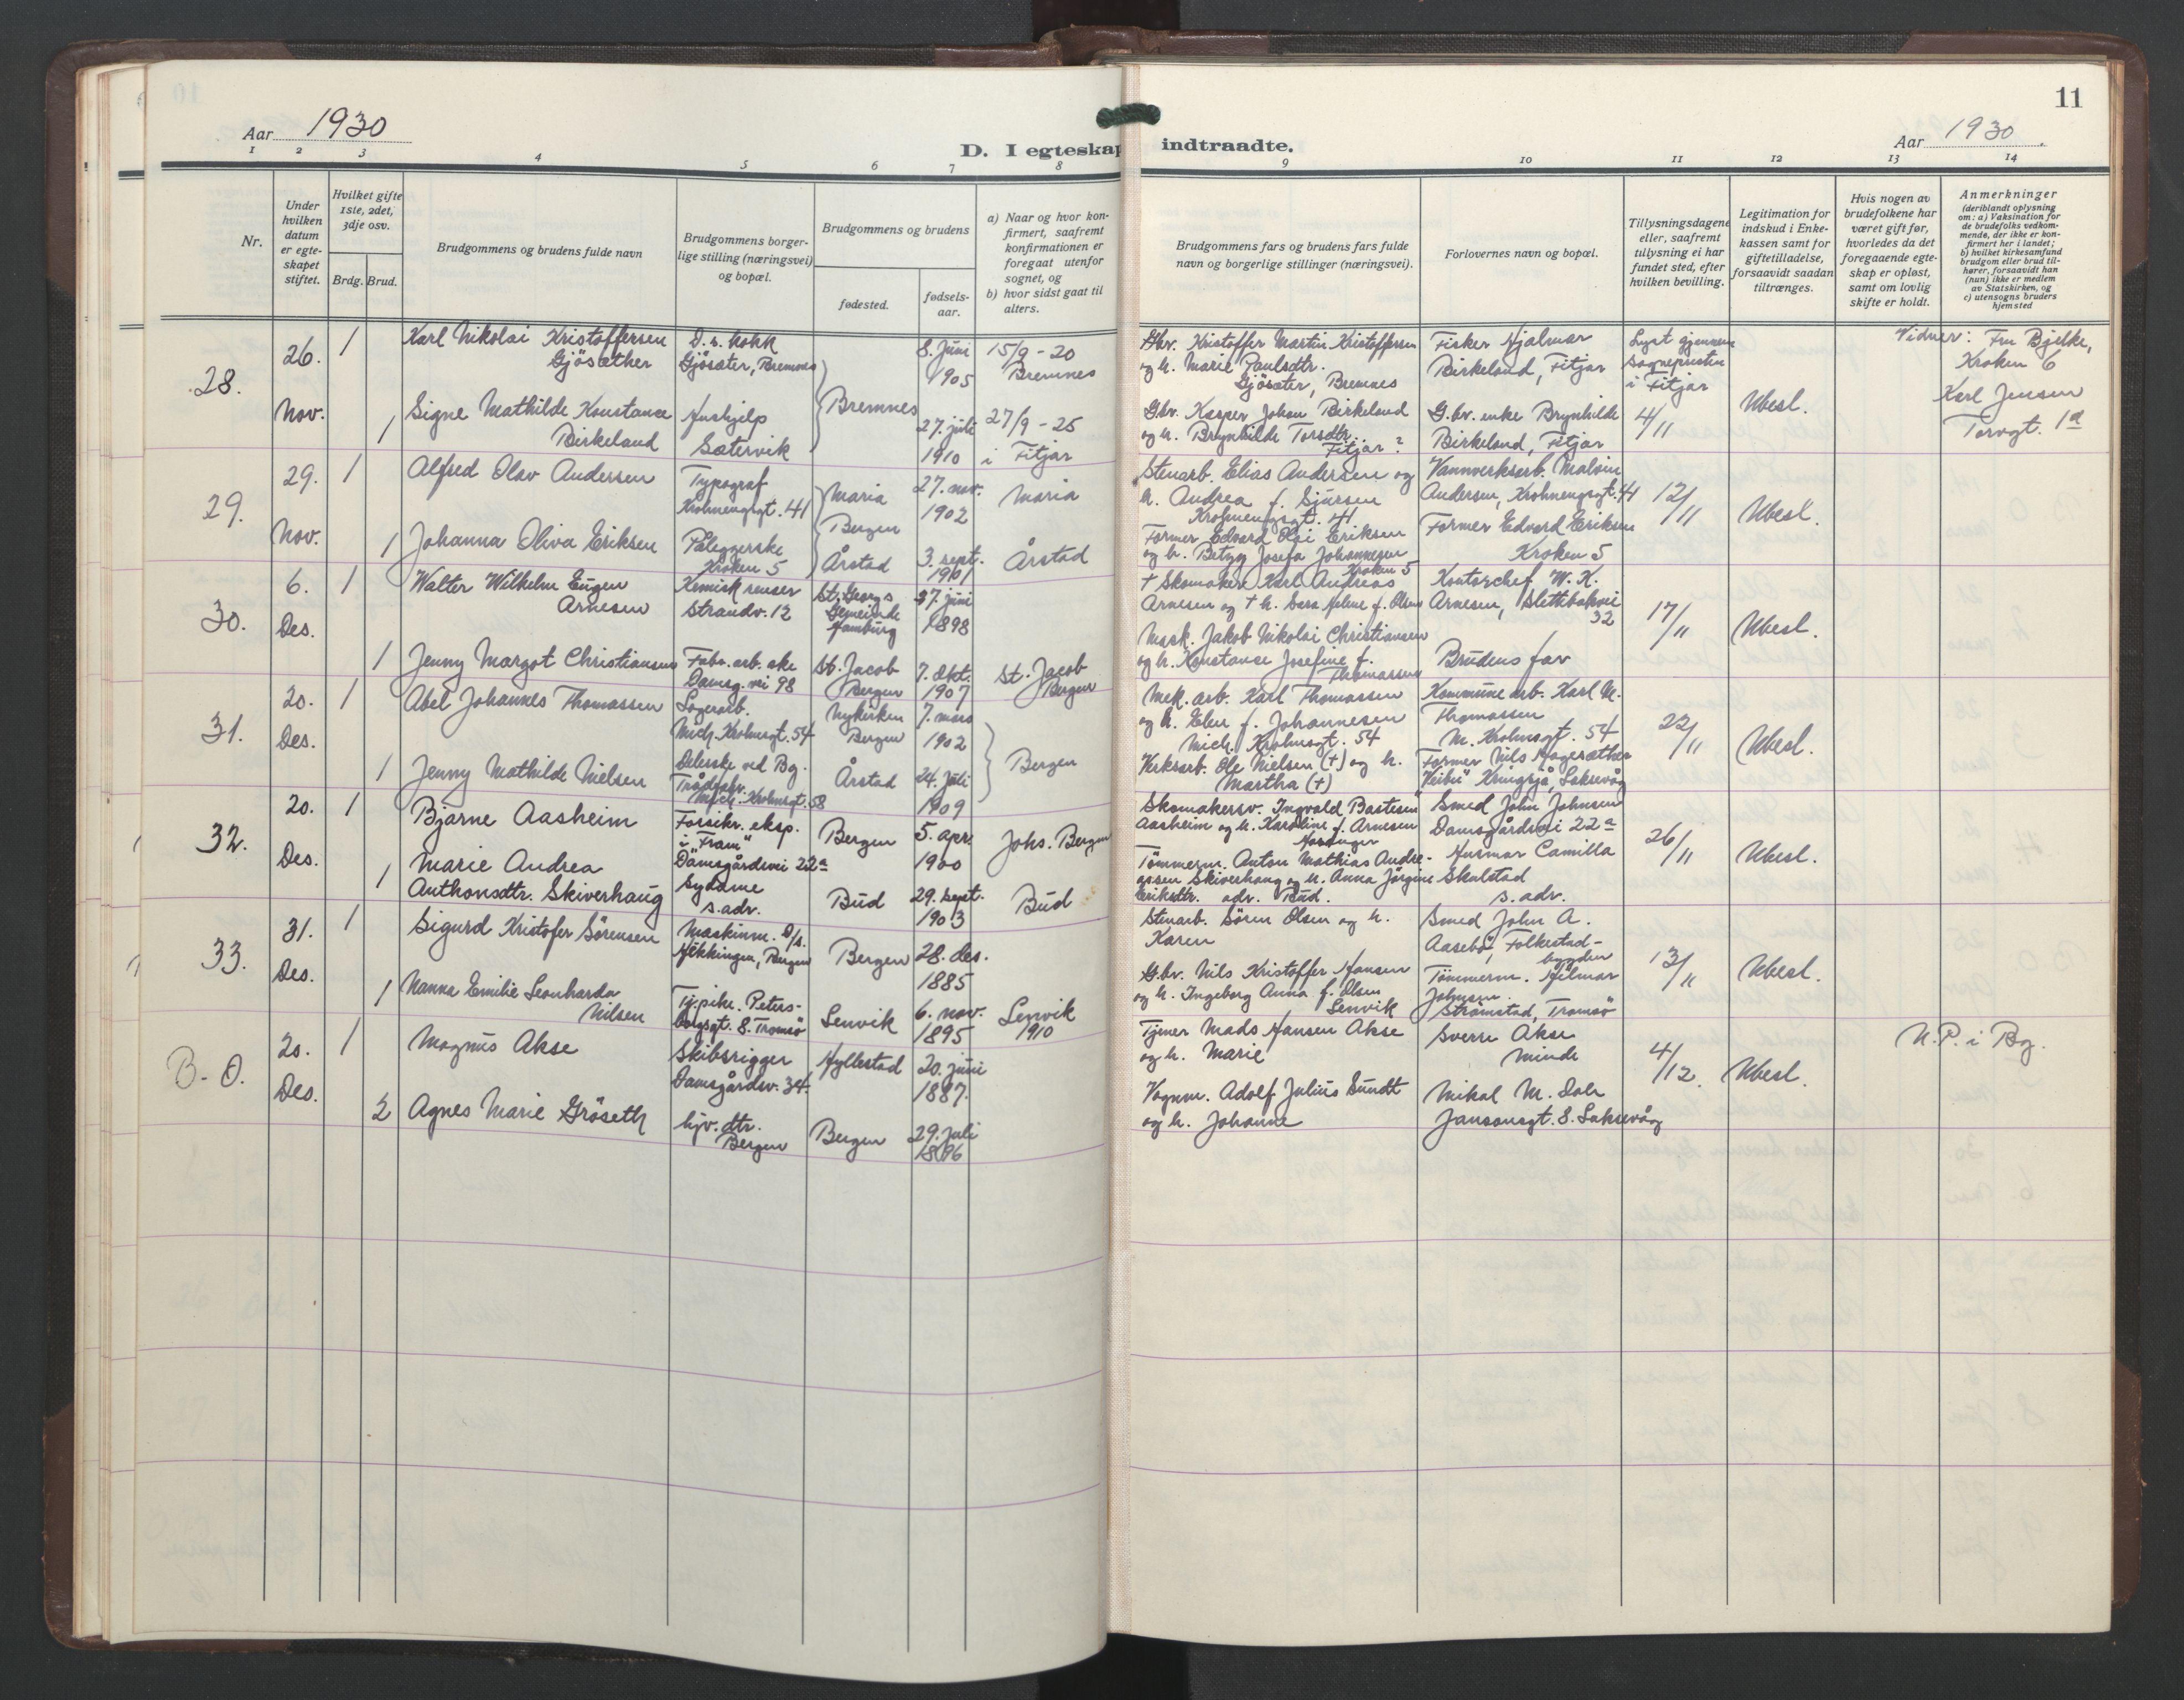 11
Aar 1930
D. I egteskap indtraadte.
Aar 1930
1 2 3 4 5 6 7 8 9 10 11 12 13 14
Nr.
Under hvilken datum er egteskapet stiftet.
Hvilket gifte 1ste, 2det, 3dje osv.
Brdg. Brud.
Brudgommens og brudens fulde navn
Brudgommens borgerlige stilling (næringsvei) og bopæl.
Brudgommens og brudens
fødested.
fødselsaar.
a) Naar og hvor konfirmert, saafremt konfirmationen er foregaat utenfor sognet, og
b) hvor sidst gaat til alters.
Brudgommens fars og brudens fars fulde navn og borgerlige stillinger (næringsvei).
Forlovernes navn og bopæl.
Tillysningsdagene eller, saafremt tillysning ei har fundet sted, efter hvilken bevilling.
Legitimation for indskud i Enkekassen samt for giftetilladelse, forsaavidt saadan tiltrænges.
Hvis nogen av brudefolkene har været gift før, hvorledes da det foregaaende egteskap er opløst, samt om lovlig skifte er holdt.
Anmerkninger
(deriblandt oplysning om: a) Vaksination for de brudefolks vedkommende, der ikke er konfirmert her i landet; b) hvilket kirkesamfund brudgom eller brud tilhører, forsaavidt han (hun) ikke er medlem av Statskirken, og c) utensogns bruders hjemsted
28.
26. Nov.
1
Karl Nikolai Kristoffersen
Gjøsæther
D.s. kokk
Gjøsæter, Bremnes
Bremnes
8. Juni
1905
15/9 - 20
Bremnes
Gbr. Kristoffer Martin Kristoffersen
og h. Marie Paulsdtr.
Gjøsæter, Bremnes
Fisker Hjalmar
Birkeland, Fitjar
Lyst gjennem
sognepresten
i Fitjar
4/11
Ubesl.
Vidner: Fru Bjelke,
Kroken 6
Karl Jensen
Torvgt. 1a
1
Signe Mathilde Konstance
Birkeland
Hushjelp
Sætervik
27. juli
1910
27/9 - 25
i Fitjar
Gbr. Kasper Johan Birkeland
og h. Brynhilde Torsdtr.
Fitjar ?
G.br. enke Brynhilde
Birkeland, Fitjar
29.
29. Nov.
1
Alfred Olav Andersen
Typograf
Krohnengsgt. 41
Maria
Bergen
27. nov.
1902
Maria
Stenarb. Elias Andersen og
h. Andrea f. Sjursen
Krohnengsgt. 41
Vannverksarb. Malvin
Andersen, Krohnengsgt. 41
12/11
Ubesl.
1
Johanna Oliva Eriksen
Påleggerske
Kroken 5
Årstad
3. sept.
1901
Årstad
Former Edvard Olai Eriksen
og h. Betzy Josefa Johannesen
Kroken 5
Former Edvard Eriksen
Kroken 5
30.
6. Des.
1
Walter Wilhelm Eugen
Arnesen
Kemisk renser
Strandv. 12
St. Georgs
Gemeinde
Hamburg
27. juni
1898
† Skomaker Karl Andreas
Arnesen og † h. Sara Helene f. Olsen
Kontorchef W. K.
Arnesen, Slettebakvei
32
17/11
Ubesl.
1
Jenny Margot Christiansen
Fabr. arb. ske
Damsg. vei 98
St. Jacob
Bergen
7. okt.
1907
St. Jacob
Bergen
Mask. Jakob Nikolai Christiansen
og h. Konstanse Josefine f.
Thomassen
Brudens far
31.
20. Des.
1
Abel Johannes Thomassen
Lagerarb.
Mich. Krohnsgt. 54
Nykirken
Bergen
7. mars
1902
Bergen
Mek. arb. Karl Thomassen
og h. Elen f. Johannesen
Mich. Krohnsgt. 54
Kommunearb. Karl M.
Thomassen
M. Krohnsgt. 54
22/11
Ubesl.
1
Jenny Mathilde Nielsen
ved Bg.
Trådfabr.
Mich. Krohnsgt. 58
Årstad
24. Juli
1909
Verksarb. Ole Nielsen (†) og h.
Martha (†)
Former Nils Hagesæther
Laksevåg
32.
20. Des.
1
Bjarne Aasheim
Forsikr. eksp.
i "Fram"
Damsgårdsvei 22a
Bergen
5. apr.
1900
Johs. Bergen
Skomakersv. Ingvald Bastesen
Aasheim og h. Karoline f. Arnesen
Smed John Johnsen
Damsgårdsvei 22a
26/11
Ubesl.
1
Marie Andrea
Anthonsdtr. Skiverhaug
Sydame
s. adr.
Bud
29. sept.
1903
Bud
Tømmerm. Anton Mathias Andreassen Skiverhaug og h. Anna Jørgine
Eriksdtr. adr. Bud.
Husmor Camilla
Skulstad
s. adr.
33.
31. Des.
1
Sigurd Kristofer Sørensen
Maskinm. D/s.
Hekkingen, Bergen
Bergen
28. des.
1885
Stenarb. Søren Olsen og h.
Karen
Smed John A.
Aasebø, Folkestad-
bygden
13/11
Ubesl.
1
Nanna Emilie Leonharda
Nilsen
Tj.pike. Peters-
borgsgt. 8. Tromsø
Senvik
6. nov.
1895
Lenvik
1910
G.br. Nils Kristoffer Hansen
og h. Ingeborg Anna f. Olsen
Lenvik
Tømmerm. Hilmar
Johnsen
Strømstad, Tromsø
B-O.
20. Des.
1
Magnus Akse
Skibsrigger
Damsgårdsv. 34.
Hyllestad
20. juni
1887.
Tjener Mads Hansen Akse
og h. Marie
Sverre Akse
Minde
4/12.
Ubesl.
N.P. i Bg.
2
Agnes Marie Grøseth
hjv. dtr.
Bergen
Bergen
29. juli
1896
Vognm. Adolf Julius Sundt
og h. Johanne
Mikal M. Dale
Jansonsgt. 8. Laksevåg